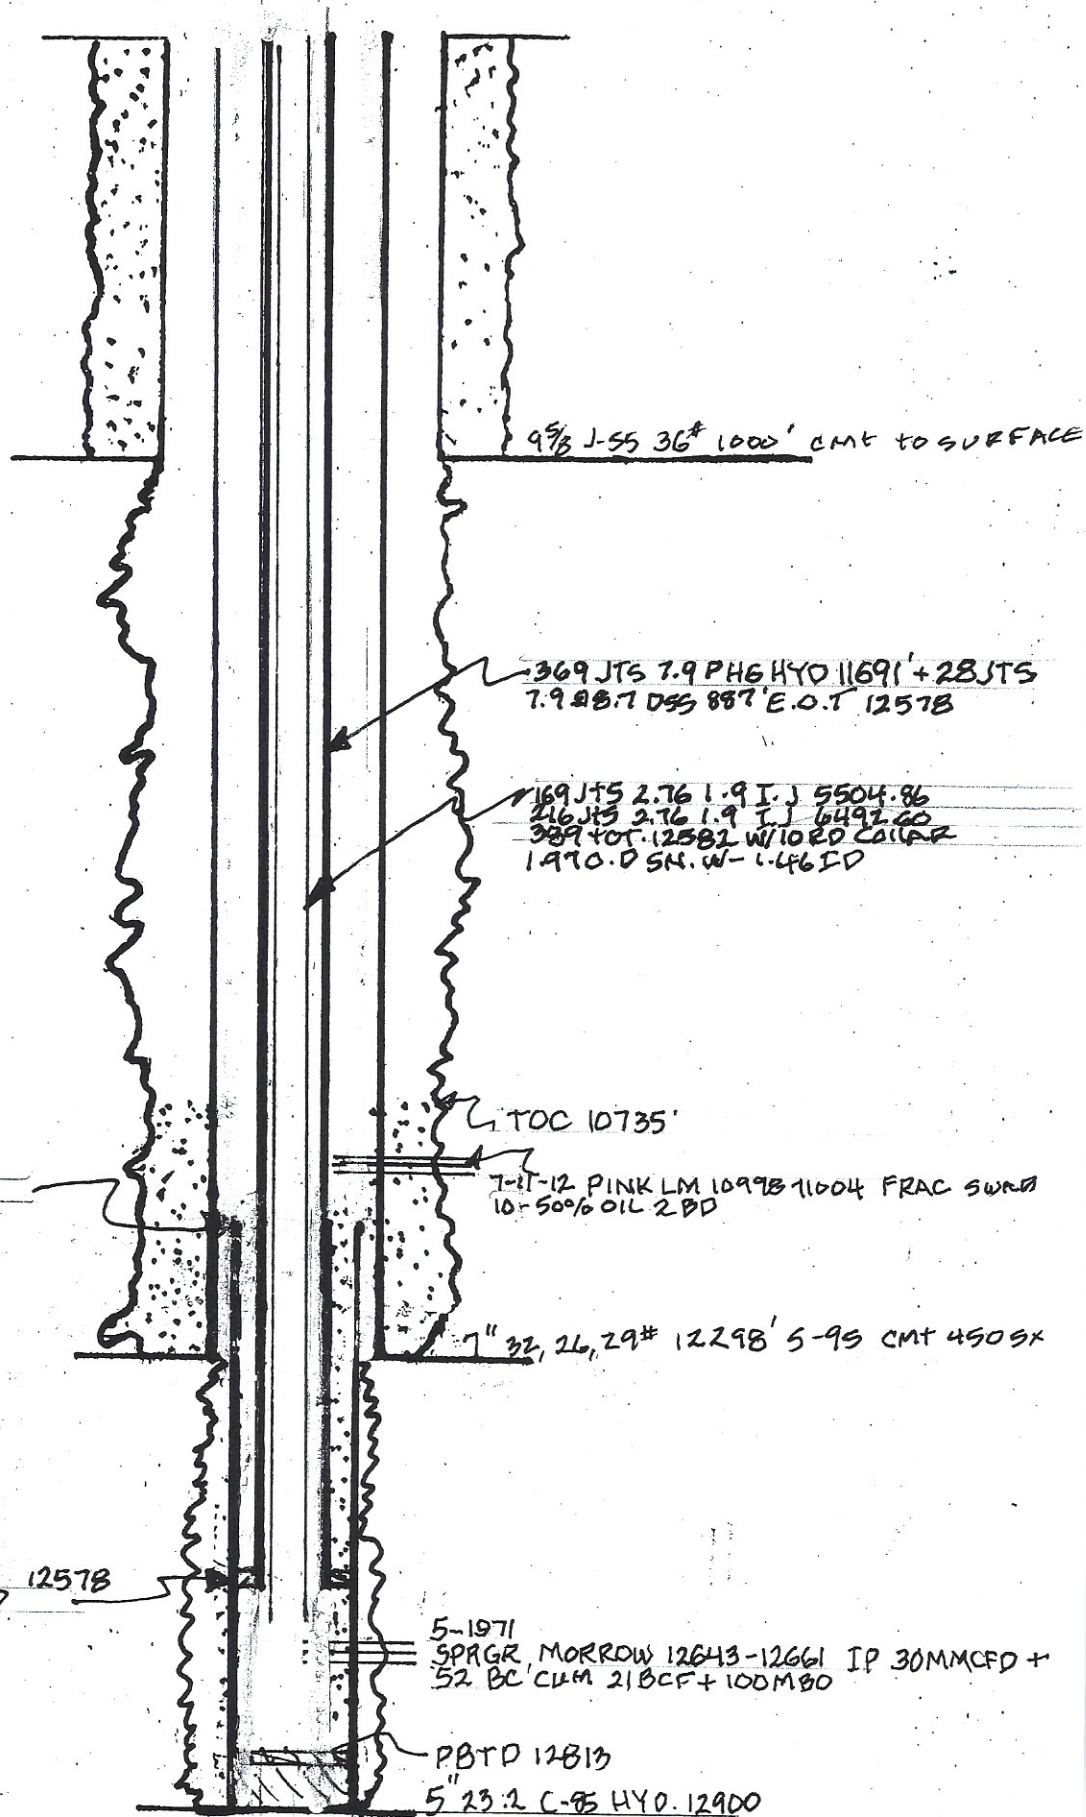 9 5/8 J-55 36# 1000' CMT TO SURFACE
369 JTS 7.9 PH6 HYD 11691' + 28 JTS
7.9 8.7 DSS 887' E.O.T 12578
169 JTS 2.76 1.9 I.J 5504.86
216 JTS 2.76 1.9 I.J
TOT. 12582 W/10 RD COLLAR
1.97 O.D SN. W- 1.46 ID
TOC 10735'
PINK LM 10998 11004 FRAC
10-50% OIL 2 BD
7" 32, 26, 29# 12298' S-95 CMT 450 SX
12578
5-1971
SPRGR, MORROW 12643-12661 IP 30MMCFD +
52 BC CUM 21BCF + 100MBO
PBTD 12813
5" 23.2 C-95 HYD. 12900